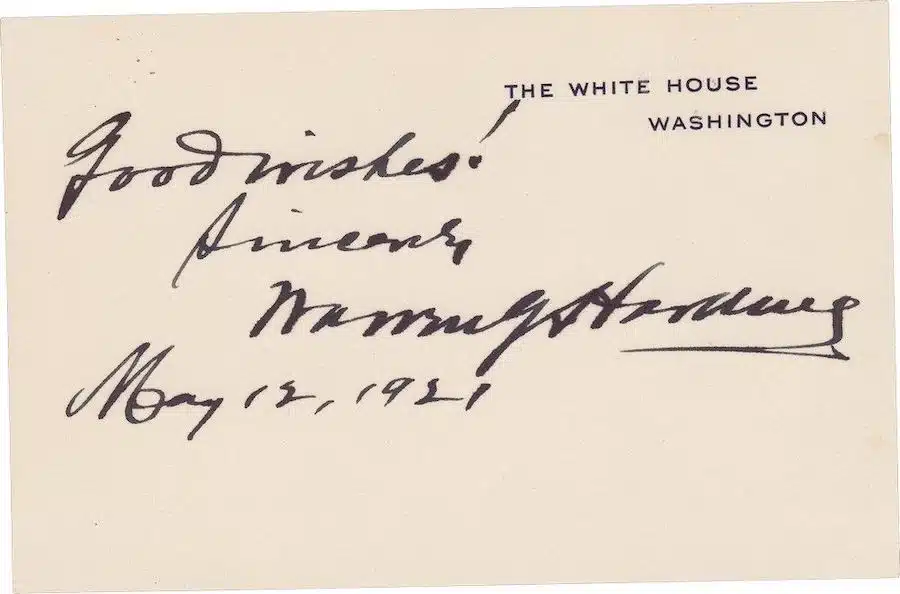 THE WHITE HOUSE
WASHINGTON
Good wishes!
Sincerely
Warren G Harding
May 12, 1921